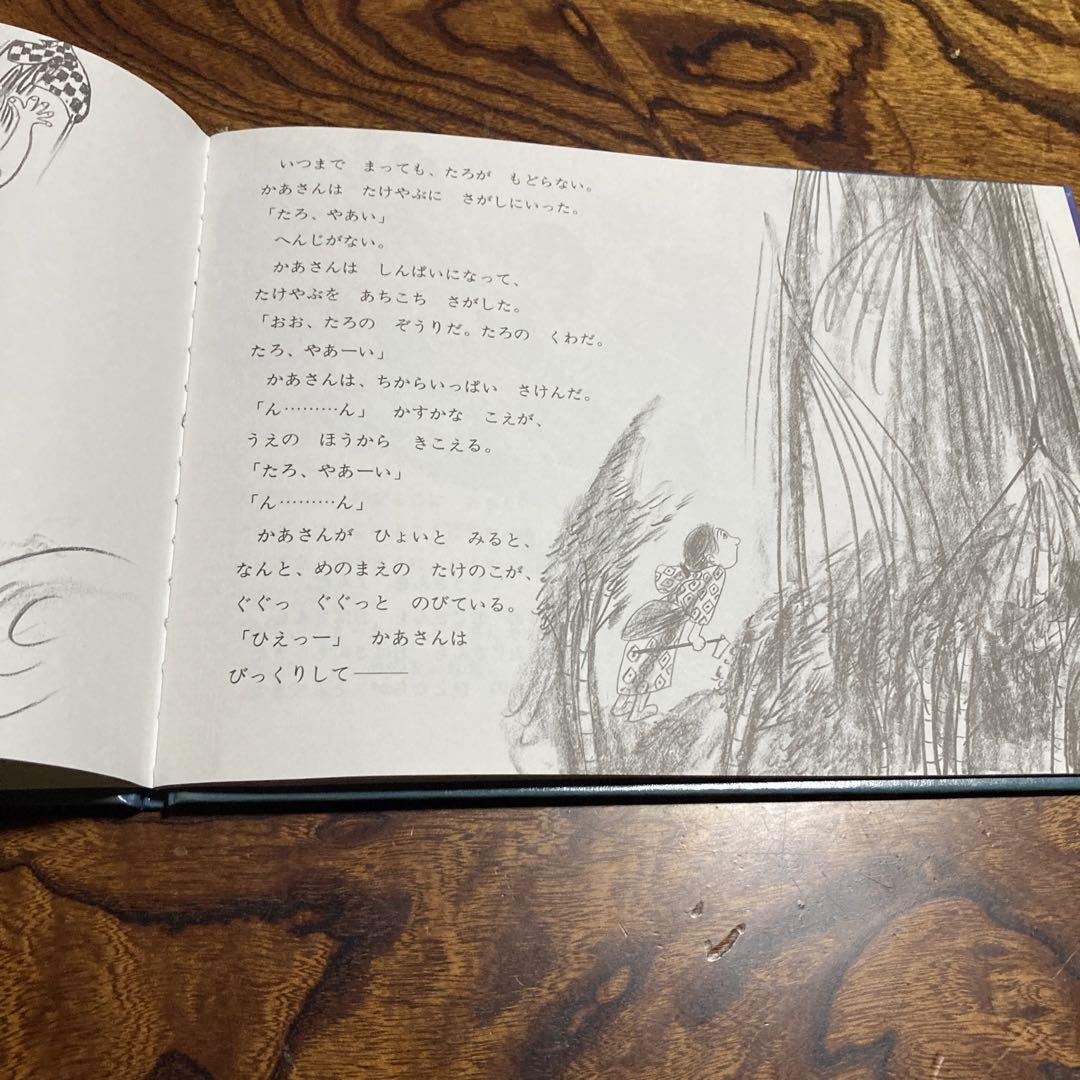 いつまで　まっても、たろが　もどらない。
かあさんは　たけやぶに　さがしにいった。
「たろ、やあい」
へんじがない。
かあさんは　しんぱいになって、
たけやぶを　あちこち　さがした。
「おお、たろの　ぞうりだ。たろの　くわだ。
たろ、やあーい」
かあさんは、ちからいっぱい　さけんだ。
「ん………ん」　かすかな　こえが、
うえの　ほうから　きこえる。
「たろ、やあーい」
「ん………ん」
かあさんが　ひょいと　みると、
なんと、めのまえの　たけのこが、
ぐぐっ　ぐぐっと　のびている。
「ひえっー」　かあさんは
びっくりして――